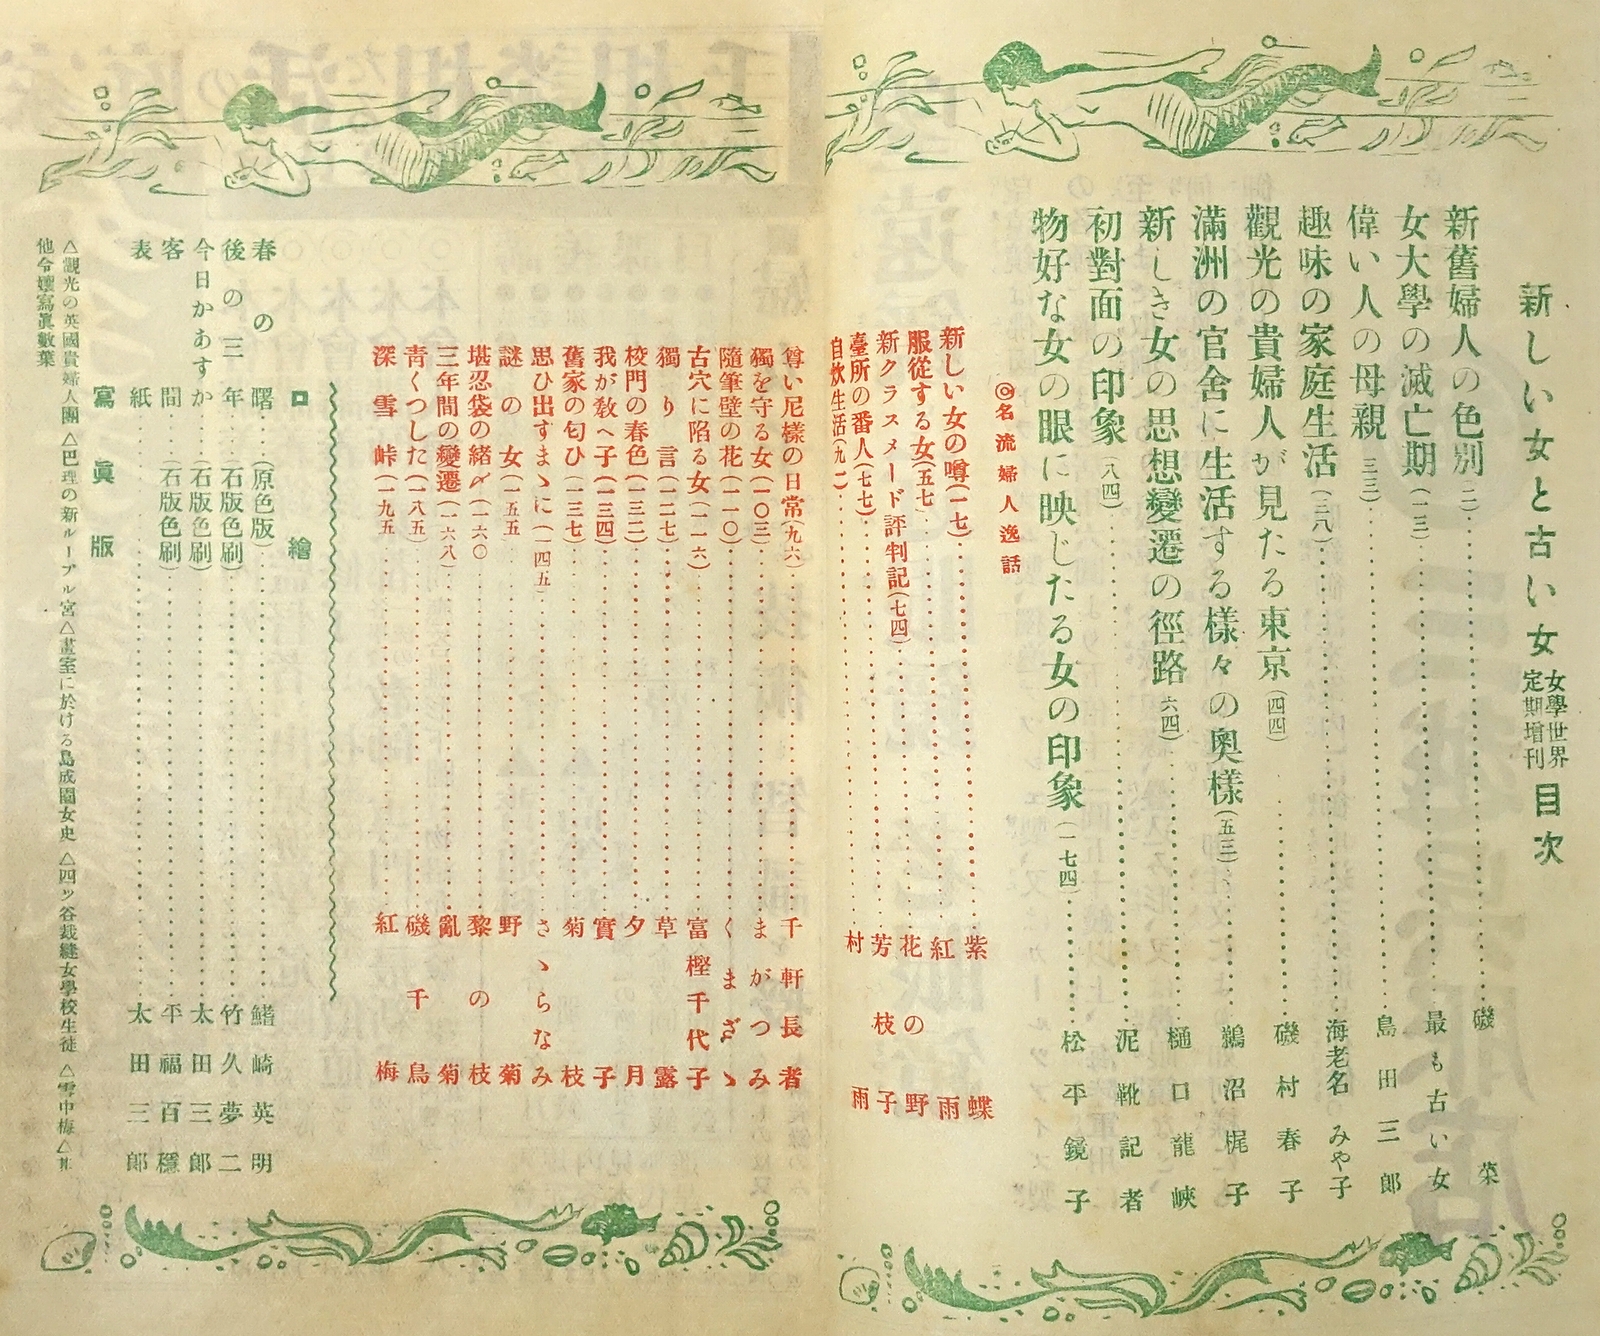 新しい女と古い女 女學世界定期增刊 目次
新舊婦人の色別(二) 磯菜
女大學の滅亡期(一三) 最も古い女
偉い人の母親(三三) 島田三郎
趣味の家庭生活(三八) 海老名みや子
觀光の貴婦人が見たる東京(四四) 磯村春子
滿洲の官舍に生活する樣々の奧樣(五三) 鵜沼梶子
新しき女の思想變遷の徑路(六四) 樋口龍峽
初對面の印象(八四) 泥靴記者
物好な女の眼に映じたる女の印象(一七四) 松平鏡子
◎名流婦人逸話
新しい女の噂(一七) 紫蝶
服從する女(五七) 紅雨
新クラスメード評判記(七四) 花の野
臺所の番人(七七) 芳枝子
自炊生活(九一) 村雨
尊い尼樣の日常(九六) 千軒長者
獨を守る女(一〇三) まがつみ
隨筆壁の花(一一〇) くまざゝ
古穴に陷る女(一一六) 富樫千代子
獨り言(一二七) 草露
校門の春色(一三二) 夕月
我が敎へ子(一三四) 實子
舊家の匂ひ(一三七) 菊枝
思ひ出すまゝに(一四五) さゝらなみ
謎の女(一五五) 野菊
堪忍袋の緖〆(一六〇) 黎の枝
三年間の變遷(一六八) 亂菊
靑くつした(一八五) 磯千鳥
深雪峠(一九五) 紅梅
口繪
春の曙(原色版) 鰭崎英明
後の三年(石版色刷) 竹久夢二
今日かあすか(石版色刷) 太田三郎
客間(石版色刷) 平福百穗
表紙 太田三郎
寫眞版
△觀光の英國貴婦人團 △巴理の新ルーブル宮 △畫室に於ける島成園女史 △四ツ谷裁縫女學校生徒 △雪中梅 △其
他令孃寫眞數葉